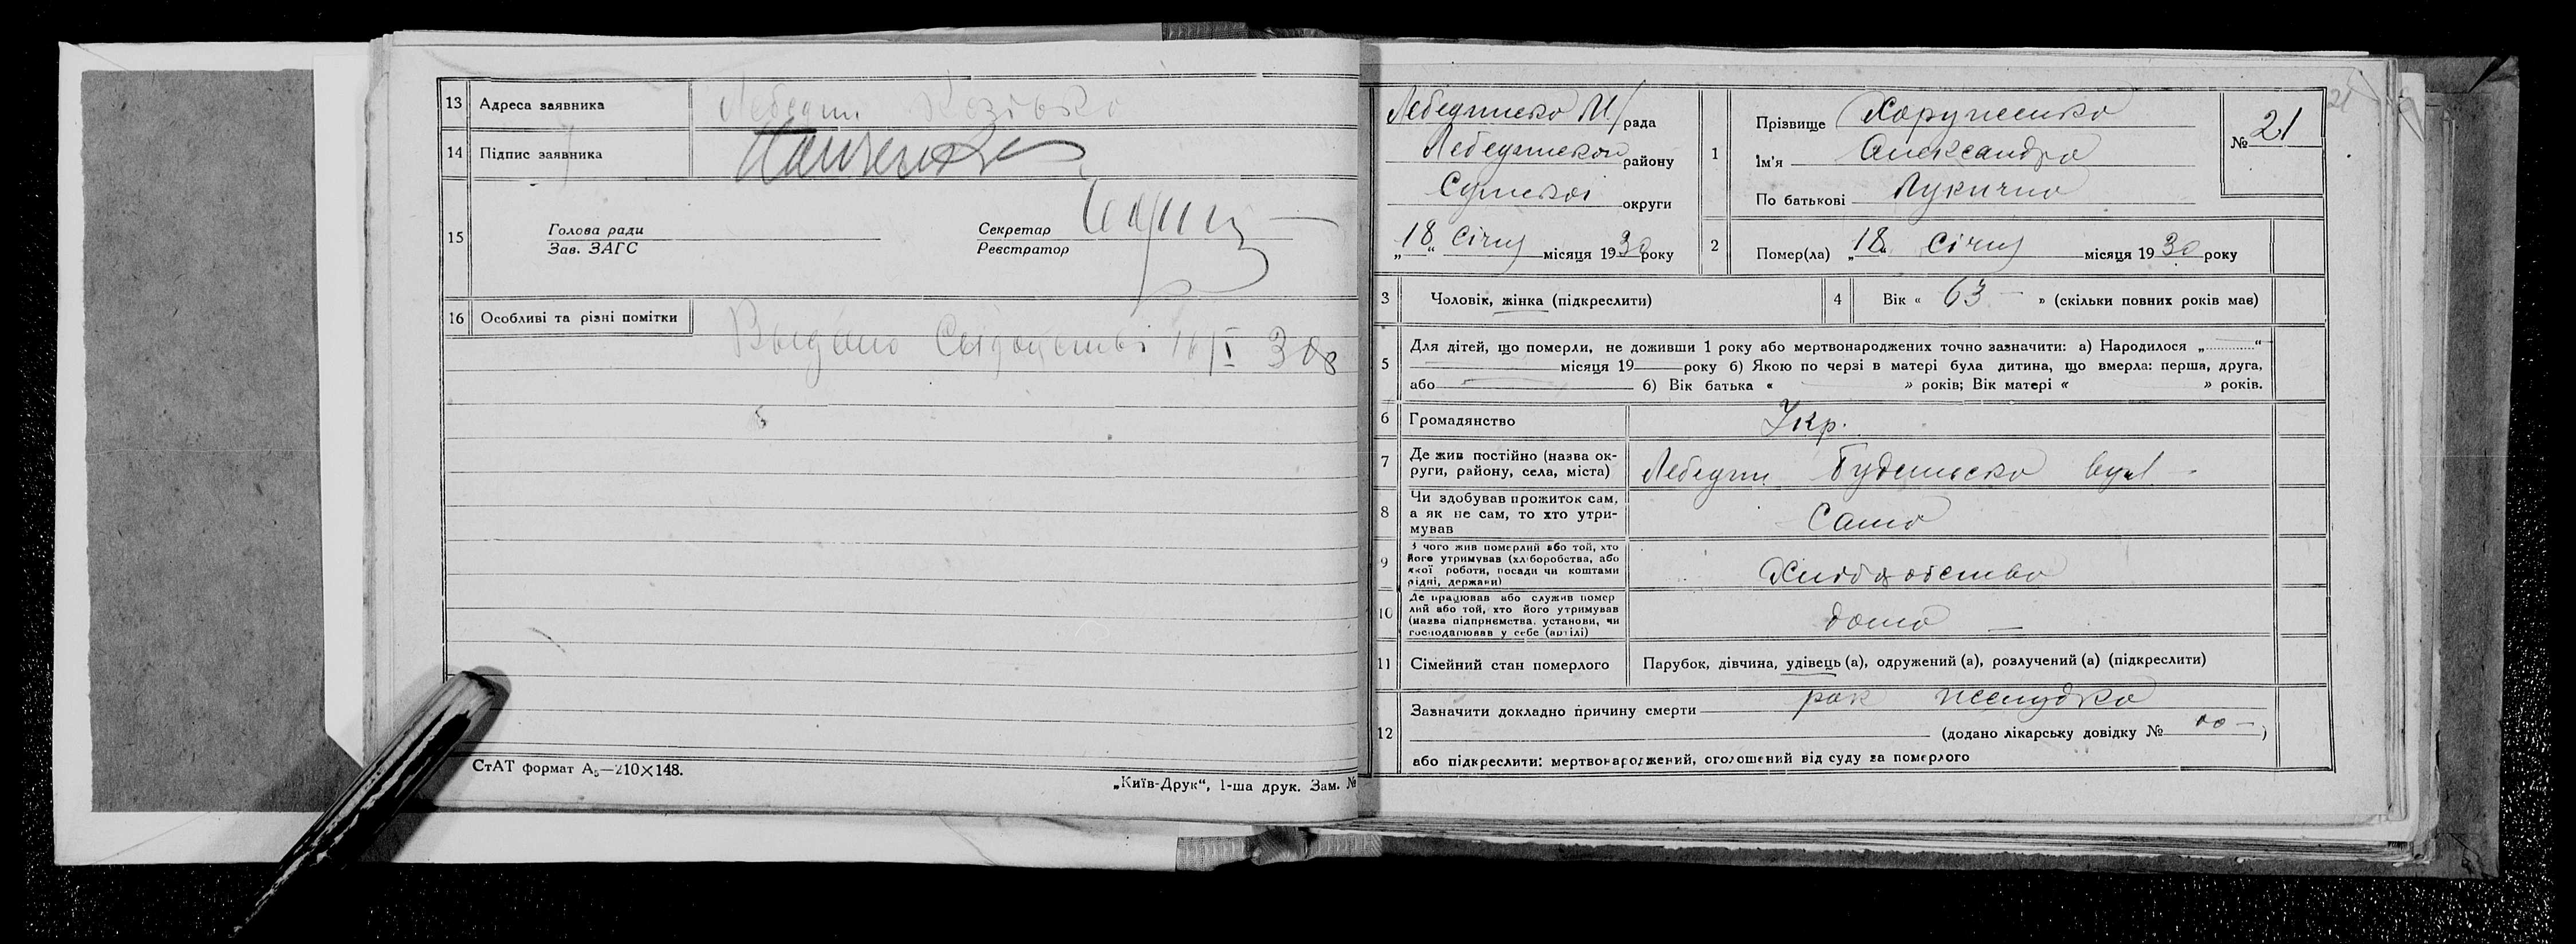 13 Адреса заявника Лебедин
14 Підпис заявника
15 Голова ради
Зав. ЗАГС
Секретар
Реєстратор
16 Особливі та різні помітки
Выдано 16/I 30
СтАТ формат А5—210×148.
„Київ-Друк“, 1-ша друк. Зам. №
Лебединська М/рада
Лебединськои району
Сумськоі округи
„18“ Січня місяця 1930 року
1 Прізвище Харученко
Ім'я Александра
По батькові Лукична
№ 21
21
2 Помер(ла) „18“ Січня місяця 1930 року
3 Чоловік, жінка (підкреслити)
4 Вік « 63 » (скільки повних років має)
5 Для дітей, що померли, не доживши 1 року або мертвонароджених точно зазначити: а) Народилося „ “
місяця 19 року б) Якою по черзі в матері була дитина, що вмерла: перша, друга,
або б) Вік батька « » років; Вік матері « » років.
6 Громадянство Укр.
7 Де жив постійно (назва ок-
руги, району, села, міста) Лебедин Будильська вул
8 Чи здобував прожиток сам,
а як не сам, то хто утри-
мував Сама
9 З чого жив померлий або той, хто
його утримував (хліборобства, або
якої роботи, посади чи коштами
рідні, держави)
10 Де працював або служив помер
лий або той, хто його утримував
(назва підприємства, установи, чи
господарював у себе (артілі) дома
11 Сімейний стан померлого Парубок, дівчина, удівець (а), одружений (а), розлучений (а) (підкреслити)
12 Зазначити докладно причину смерти рак желудка
(додано лікарську довідку № )
або підкреслити: мертвонароджений, оголошений від суду за померлого